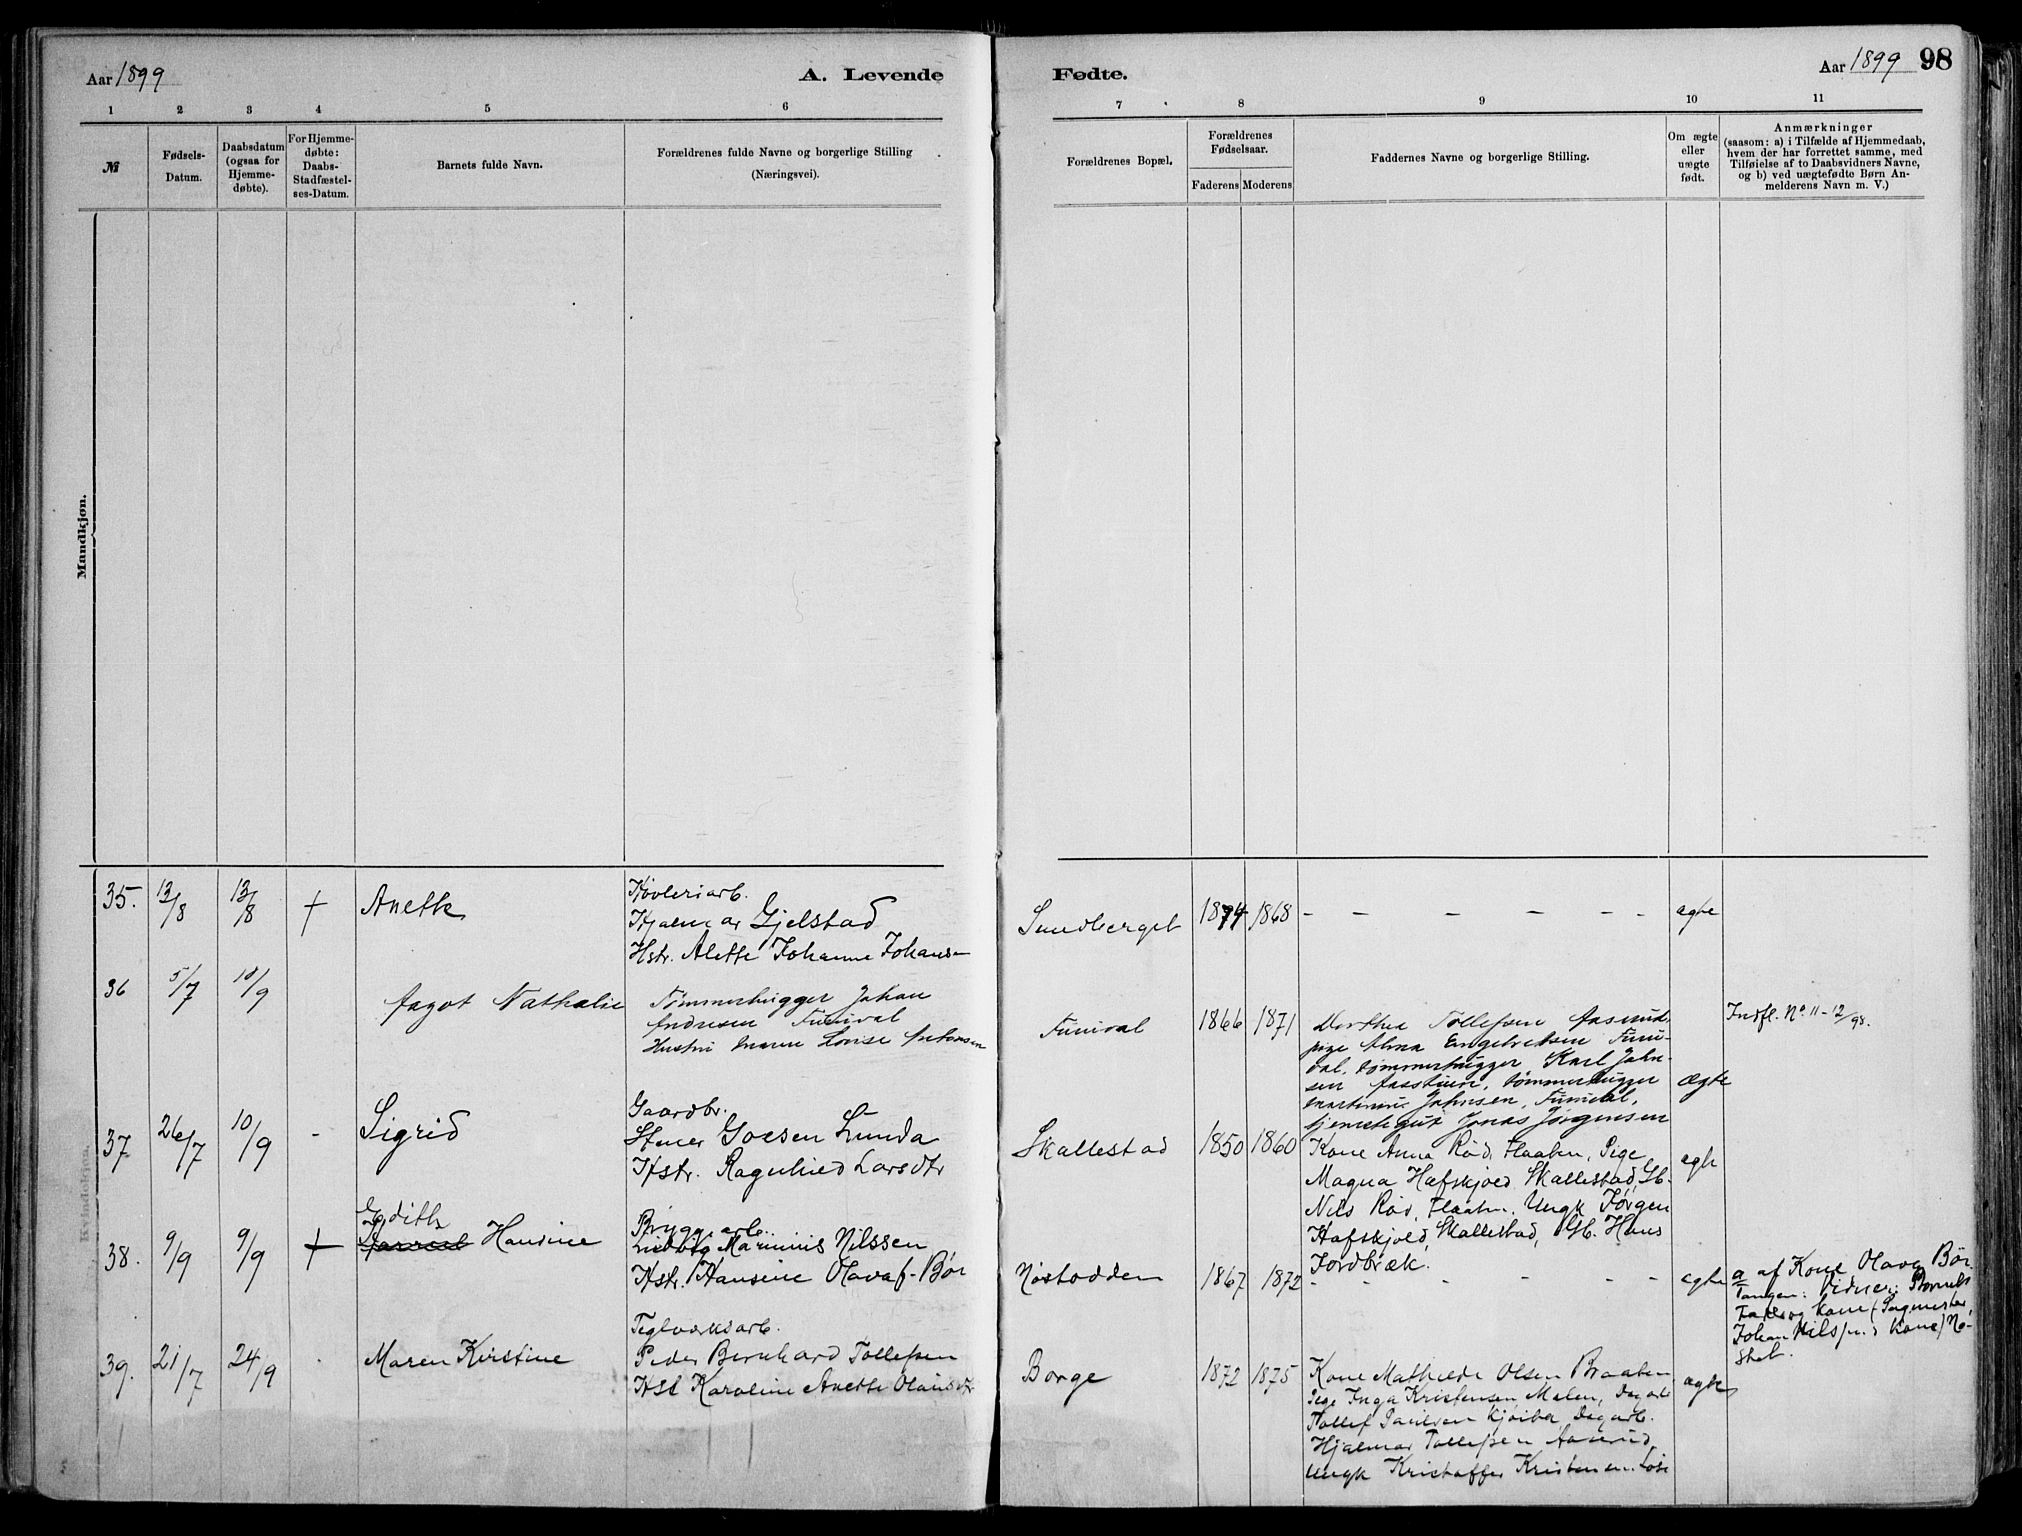 Aar 1899
A. Levende
Fødte.
Aar 1899 98
1 2 3 4 5 6 7 8 9 10 11
№
Fødsels-
Datum.
Daabsdatum
(ogsaa for
Hjemme-
døbte).
For Hjemme-
døbte:
Daabs-
Stadfæstel-
ses-Datum.
Barnets fulde Navn.
Forældrenes fulde Navne og borgerlige Stilling
(Næringsvei).
Forældrenes Bopæl.
Forældrenes
Fødselsaar.
Faderens Moderens
Faddernes Navne og borgerlige Stilling.
Om ægte
eller
uægte
født.
Anmærkninger
(saasom: a) i Tilfælde af Hjemmedaab,
hvem der har forrettet samme, med
Tilføielse af to Daabsvidners Navne,
og b) ved uægtefødte Børn An-
melderens Navn m. V.)
Mandkjøn.
Kvindekjøn.
35. 13/8 13/8 † Anette
Høvleriarb.
Hjalmar Gjelstad
Hstr. Alette Johanne Johansen
Sundberget 1874 1868 - - - - - - ægte
36 5/7 10/9 Aagot Nathalie
Tømmerhugger Johan
Andresen Funival
Hustru Maren Lovise Antonsen
Funival 1866 1871
Dorthea Tollefsen Aasrud,
pige Alma Engebretsen Funi-
val, tømmerhugger Karl John-
sen Aasstuen, tømmerhugger
Martinius Johnsen, Funival,
tjenestegut Jonas Jørgensen
ægte
Indfl. No 11-12/98.
37 26/7 10/9 - Sigrid
Gaardbr.
Goesen Lunda
Hstr. Ragnhild Larsdtr
Skallestad 1850 1860
Kone Anna Rød, Flaaten, Pige
Magna Hafskjold Skallestad, Gb.
Nils Rød, Flaaten, Ungk Jørgen
Hafskjold, Skallestad, Gb. Hans
Jordbræk.
ægte
38. 9/9 9/9 †
Edith
Hansine
Bryggearb.
Marinius Nilssen
Hstr. Hansine Olava f. Bør
Nøstodden 1867 1872 - - - - - - ægte
a af Kone Olava Bør
Tangen: Vidner: Barnets
Fader og Kone (Sagmester
Johan Nilsen's Kone) Nø-
39. 21/7 24/9 . Maren Kirstine
Teglværksarb.
Peder Bernhard Tollefsen
Hst Karoline Anette Olausdtr
Borge 1872 1875
Kone Mathilde Olsen Braaten
Pige Inga Kristensen Malen, Dagarb
Tollef Paulsen Dagarb.
Hjalmar Tollefsen Aasrud,
Ungk Kristoffer Kristensen
ægte